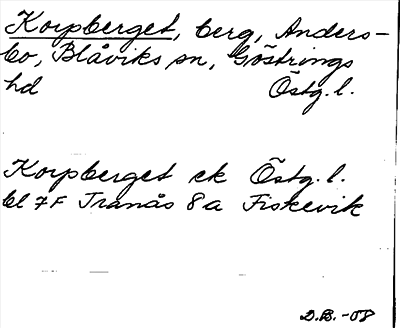 Korpberget, berg, Anders-
bo, Blåviks sn, Göstrings
hd Östg. l.
Korpberget ek Östg. l.
bl 7F Tranås 8a Fiskevik
D.B. -08